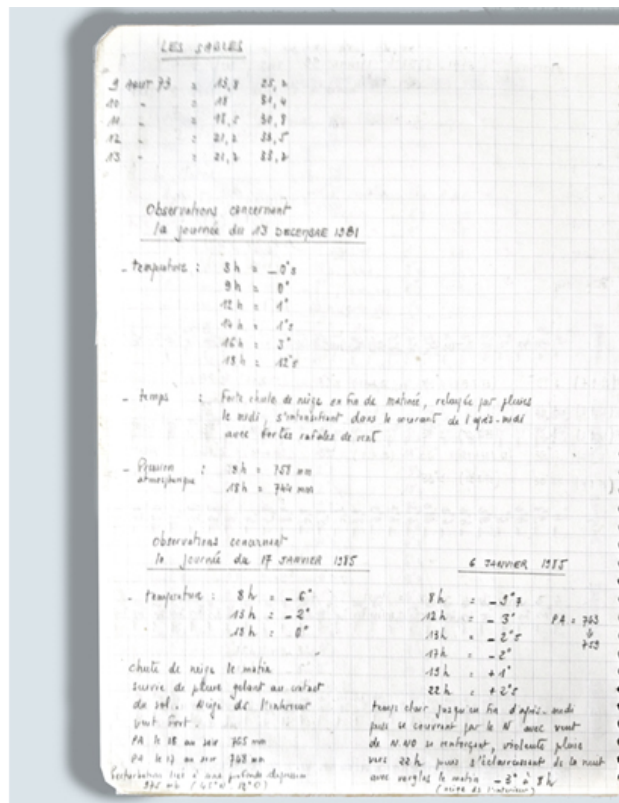 LES SABLES
9 AOUT 79 = 25,2
10 " = 18 31,4
11 " = 18,5 30,8
12 " = 21,2 38,5
13 " = 21,2 28,2
Observations concernant
la journée du 13 DECEMBRE 1981
- température : 8h = -0°8
9h = 0°
12h = 1°
14h = 1°5
16h = 3°
18h = 12°5
- temps : Forte chute de neige en fin de matinée, relayée par pluies
le midi, s'intensifiant dans le courant de l'après-midi
avec fortes rafales de vent
- Pression
atmosphérique : 9h = 757 mm
18h = 744 mm
Observations concernant
la journée du 17 JANVIER 1985
- température : 8h = -6°
13h = -2°
18h = 0°
chute de neige le matin
suivie de pluie gelant au contact
du sol. Neige de l'intérieur
vent fort.
PA le au soir 765 mm
PA le 17 au soir 748 mm
Perturbation liée à une profonde dépression
975 mb (45°N 12°O)
6 JANVIER 1985
8h = -9°7
12h = -3° PA = 763
13h = -2°5 ↓
17h = -2° 759
19h = +1°
22h = +2°5
temps clair jusqu'en fin d'après-midi
puis se couvrant par le N avec vent
de N.NO se renforçant, violente pluie
vers 22h puis éclaircissement de la nuit
avec verglas le matin -3° à 8h
(neige dans l'intérieur)